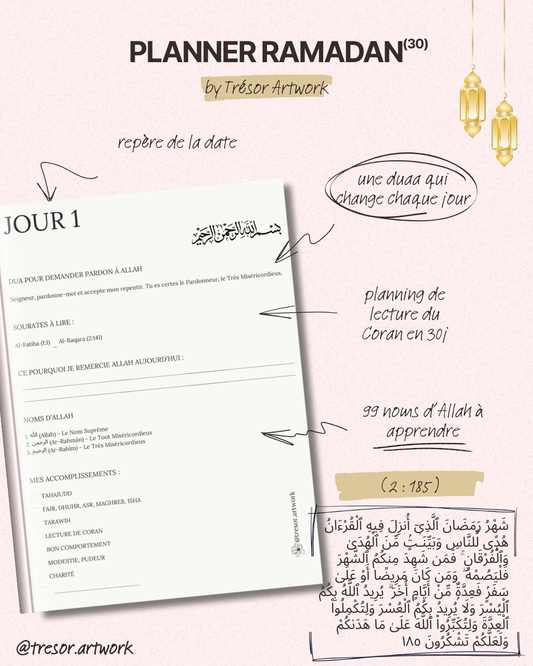 PLANNER RAMADAN(30)
by Trésor Artwork
repère de la date
une duaa qui
change chaque jour
JOUR 1
بسم الله الرحمن الرحيم
DUA POUR DEMANDER PARDON À ALLAH
Seigneur, pardonne-moi et accepte mon repentir. Tu es certes le Pardonneur, le Très Miséricordieux.
planning de
lecture du
Coran en 30j
SOURATES À LIRE :
Al-Fatiha (1:1) → Al-Baqara (2:141)
CE POURQUOI JE REMERCIE ALLAH AUJOURD'HUI :
99 noms d'Allah à
apprendre
NOMS D'ALLAH
1. الله (Allah) - Le Nom Suprême
2. الرحمن (Ar-Rahmân) - Le Tout Miséricordieux
3. الرحيم (Ar-Rahîm) - Le Très Miséricordieux
MES ACCOMPLISSEMENTS :
TAHAJUDD
FAJR, DHUHR, ASR, MAGHREB, ISHA
TARAWIH
LECTURE DE CORAN
BON COMPORTEMENT
MODESTIE, PUDEUR
CHARITÉ
@tresor.artwork
(2 : 185)
شَهْرُ رَمَضَانَ ٱلَّذِىٓ أُنزِلَ فِيهِ ٱلْقُرْءَانُ
هُدًى لِّلنَّاسِ وَبَيِّنَـٰتٍ مِّنَ ٱلْهُدَىٰ
وَٱلْفُرْقَانِ ۚ فَمَن شَهِدَ مِنكُمُ ٱلشَّهْرَ
فَلْيَصُمْهُ ۖ وَمَن كَانَ مَرِيضًا أَوْ عَلَىٰ
سَفَرٍ فَعِدَّةٌ مِّنْ أَيَّامٍ أُخَرَ ۗ يُرِيدُ ٱللَّهُ بِكُمُ
ٱلْيُسْرَ وَلَا يُرِيدُ بِكُمُ ٱلْعُسْرَ وَلِتُكْمِلُوا۟
ٱلْعِدَّةَ وَلِتُكَبِّرُوا۟ ٱللَّهَ عَلَىٰ مَا هَدَىٰكُمْ
وَلَعَلَّكُمْ تَشْكُرُونَ ١٨٥
@tresor.artwork